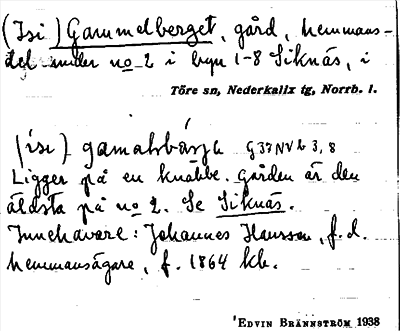 (Isi) Gammelberget, gård, hemmans-
del under no 2 i byn 1-8 Siknäs, i
Töre sn, Nederkalix tg, Norrb. l.
(ısı) gamalbärje G37NVb 3, 8
Ligger på en knabbe. Gården är den
äldsta på no 2. Se Siknäs.
Innehavare: Johannes Hansson, f.d.
hemmansägare, f. 1864 hb.
EDVIN BRÄNNSTRÖM 1938